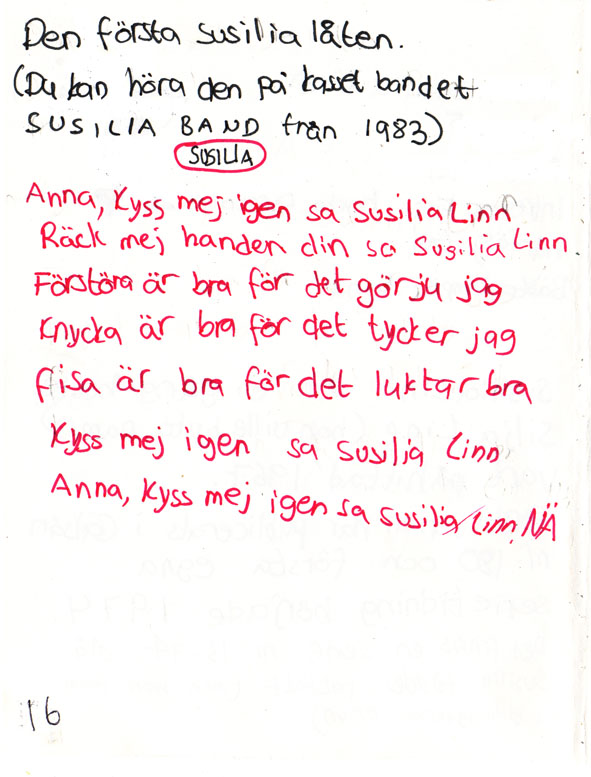 Den första susilia låten.
(Du kan höra den på kasset bandet
SUSILIA BAND från 1983)
SUSILIA
Anna, Kyss mej igen sa Susilia Linn
Räck mej handen din sa Susilia Linn.
Förstöra är bra för det görju jag
Knycka är bra för det tycker jag
fisa är bra för det luktar bra
Kyss mej igen sa Susilia Linn
Anna, Kyss mej igen sa susilia Linn, NÄ
16